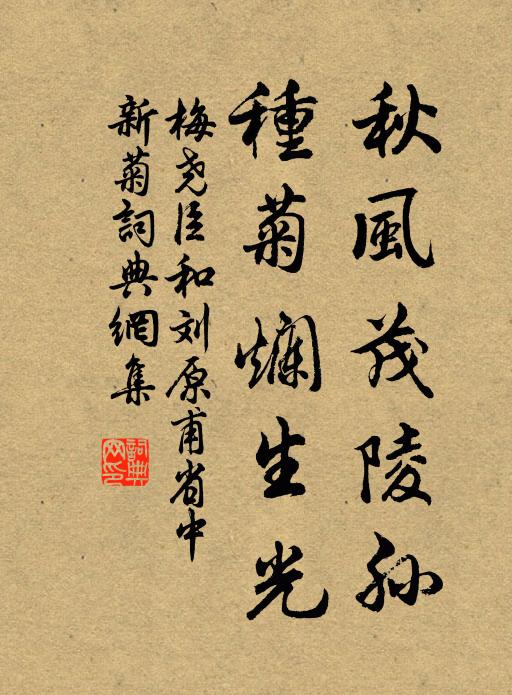 秋風茂陵孙
種菊爛生光
梅尧臣和刘原甫省中
新菊詞典網集
詞典
网印